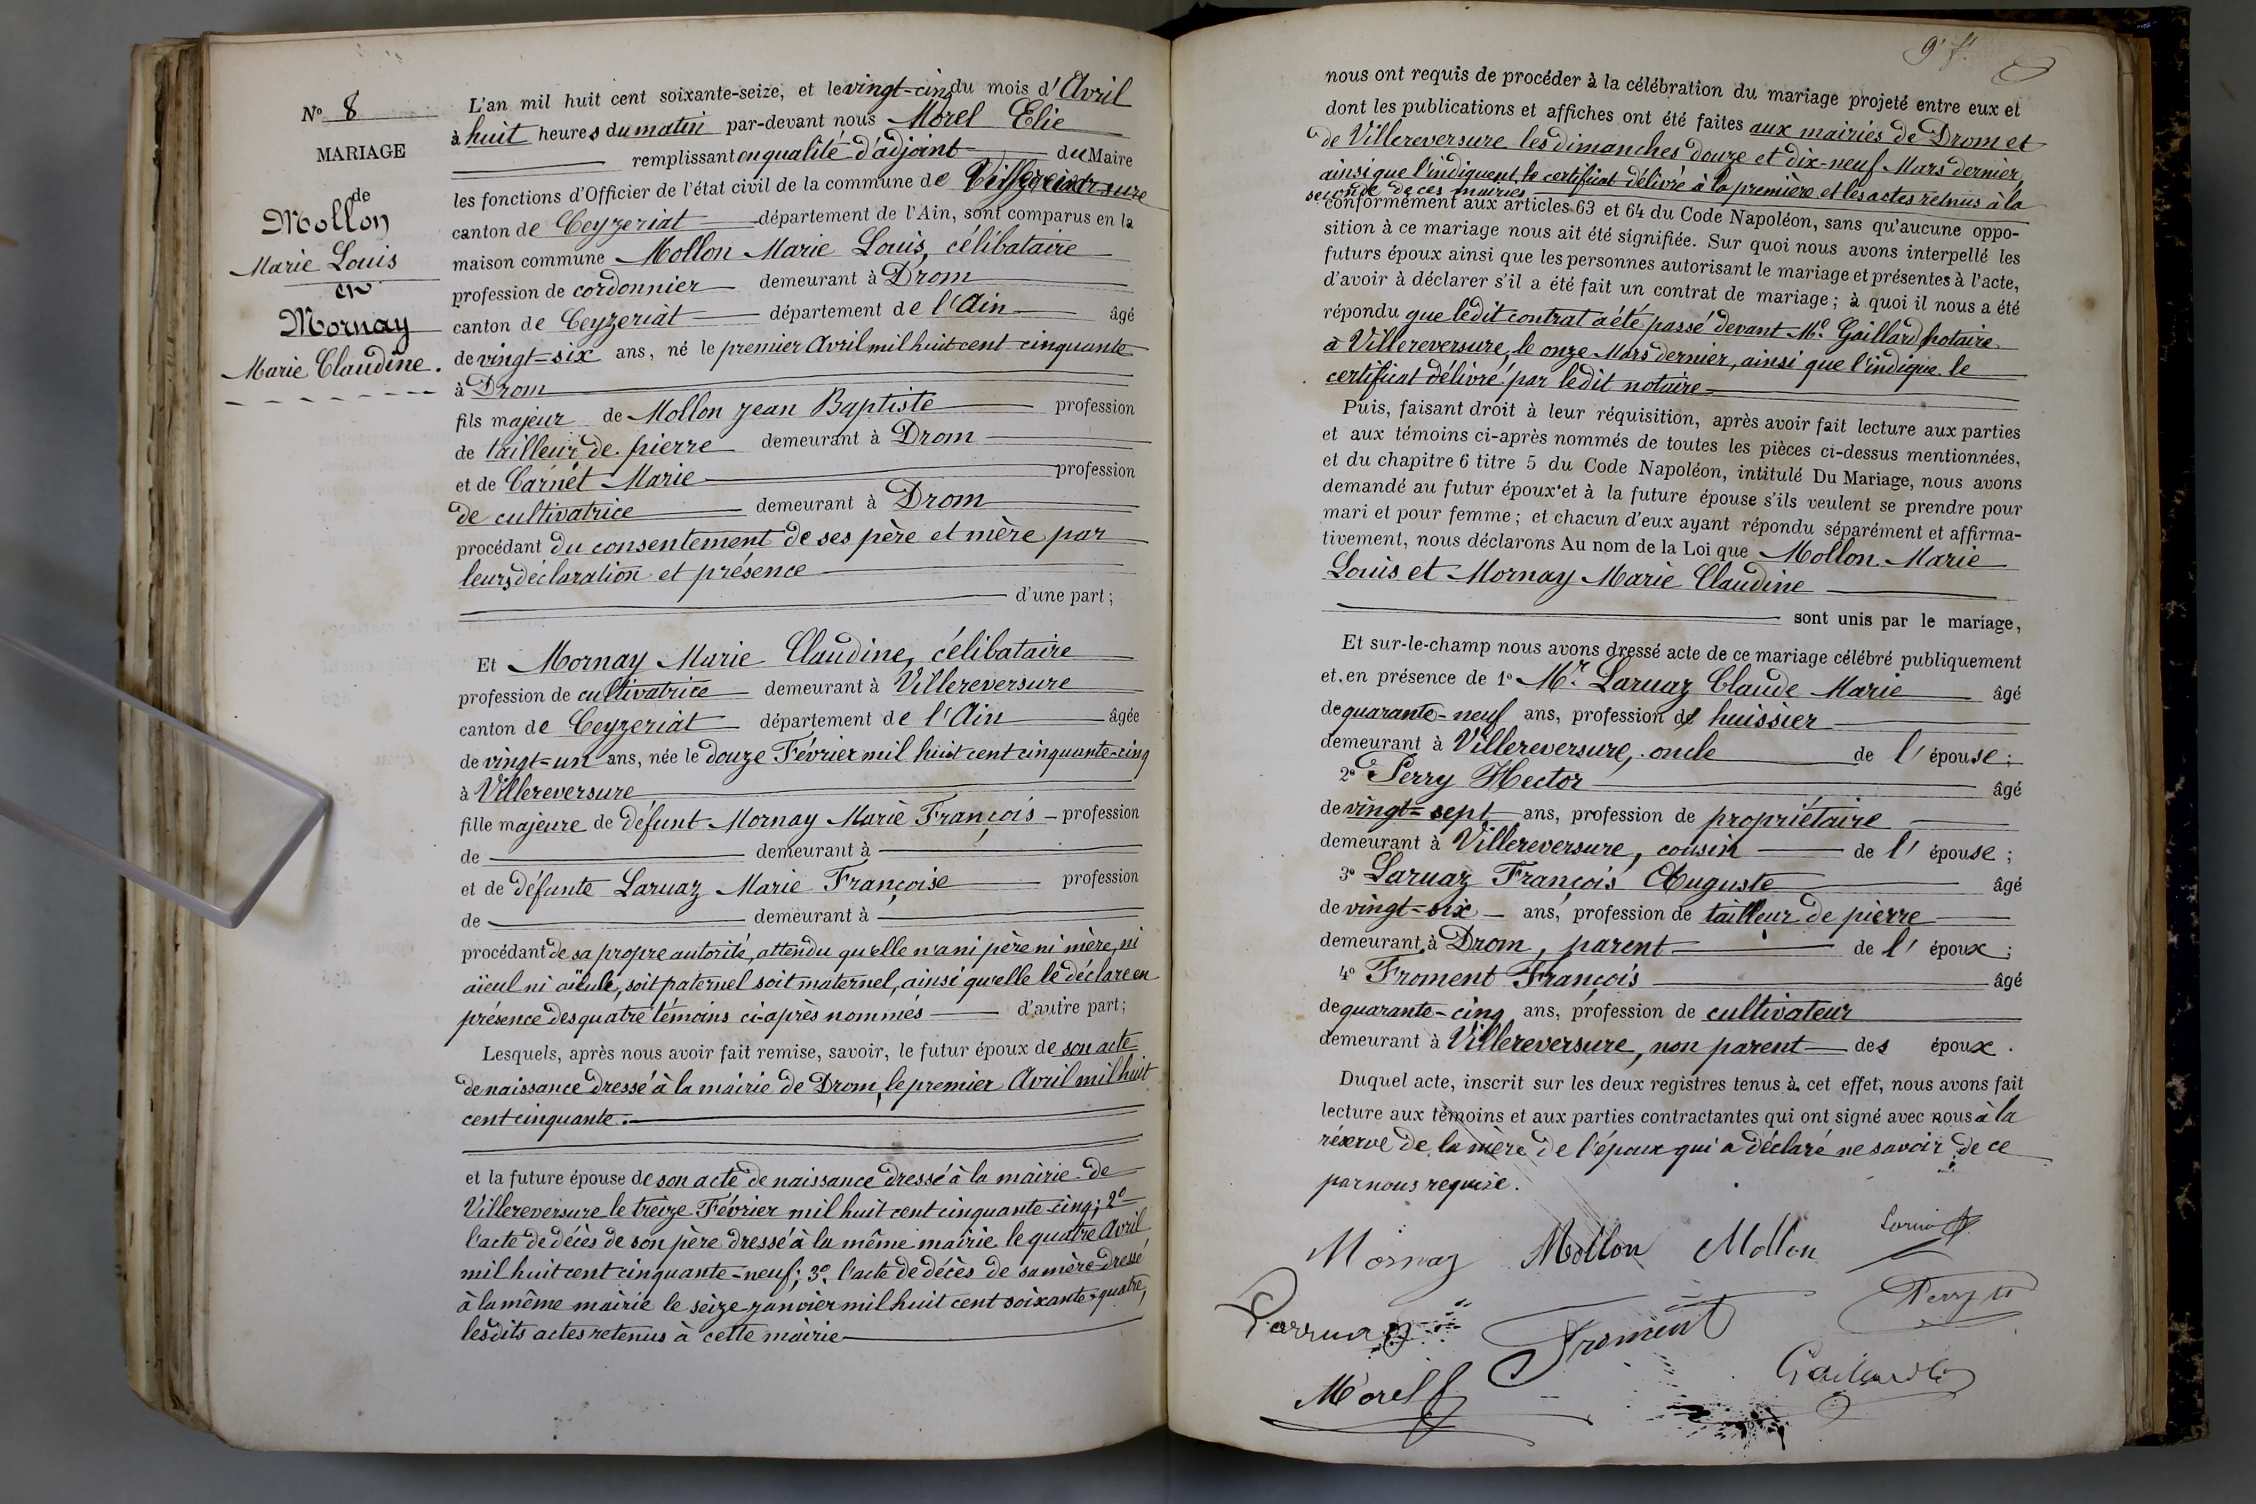 N° 8
MARIAGE
de
Mollon
Marie Louis
et
Mornay
Marie Claudine.
L'an mil huit cent soixante-seize, et le vingt-cinq du mois d'Avril
à huit heures du matin par-devant nous Morel Elie
remplissant en qualité d'adjoint du Maire
les fonctions d'Officier de l'état civil de la commune de Villereversure
canton de Ceyzeriat département de l'Ain, sont comparus en la
maison commune Mollon Marie Louis, célibataire
profession de cordonnier demeurant à Drom
canton de Ceyzeriat département de l'Ain âgé
de vingt=six ans, né le premier Avril mil huit cent cinquante
à Drom
fils majeur de Mollon Jean Baptiste profession
de tailleur de pierre demeurant à Drom
et de Carnet Marie profession
de cultivatrice demeurant à Drom
procédant du consentement de ses père et mère par
leurs déclaration et présence
d'une part;
Et Mornay Marie Claudine, célibataire
profession de cultivatrice demeurant à Villereversure
canton de Ceyzeriat département de l'Ain âgée
de vingt=un ans, née le douze Février mil huit cent cinquante-cinq
à Villereversure
fille majeure de défunt Mornay Marie François profession
de demeurant à
et de défunte Laruaz Marie Françoise profession
de demeurant à
procédant de sa propre autorité, attendu qu'elle n'a ni père ni mère, ni
aïeul ni aïeule, soit paternel soit maternel, ainsi qu'elle le déclare en
présence des quatre témoins ci-après nommés d'autre part;
Lesquels, après nous avoir fait remise, savoir, le futur époux de son acte
de naissance dressé à la mairie de Drom, le premier Avril mil huit
cent cinquante.
et la future épouse de son acte de naissance dressé à la mairie de
Villereversure le treize Février mil huit cent cinquante-cinq; 2°
l'acte de décès de son père dressé à la même mairie le quatre Avril
mil huit cent cinquante-neuf; 3° l'acte de décès de sa mère dressé
à la même mairie le seize Janvier mil huit cent soixante-quatre,
lesdits actes retenus à cette mairie
9e f.
nous ont requis de procéder à la célébration du mariage projeté entre eux et
dont les publications et affiches ont été faites aux mairies de Drom et
de Villereversure les dimanches douze et dix-neuf Mars dernier,
ainsi que l'indiquent le certificat délivré à la première et les actes retenus à la
seconde de ces mairies
conformément aux articles 63 et 64 du Code Napoléon, sans qu'aucune oppo-
sition à ce mariage nous ait été signifiée. Sur quoi nous avons interpellé les
futurs époux ainsi que les personnes autorisant le mariage et présentes à l'acte,
d'avoir à déclarer s'il a été fait un contrat de mariage; à quoi il nous a été
répondu que ledit contrat a été passé devant Me Gaillard notaire
à Villereversure, le onze Mars dernier, ainsi que l'indique le
certificat délivré par ledit notaire
Puis, faisant droit à leur réquisition, après avoir fait lecture aux parties
et aux témoins ci-après nommés de toutes les pièces ci-dessus mentionnées,
et du chapitre 6 titre 5 du Code Napoléon, intitulé Du Mariage, nous avons
demandé au futur époux et à la future épouse s'ils veulent se prendre pour
mari et pour femme; et chacun d'eux ayant répondu séparément et affirma-
tivement, nous déclarons Au nom de la Loi que Mollon Marie
Louis et Mornay Marie Claudine
sont unis par le mariage,
Et sur-le-champ nous avons dressé acte de ce mariage célébré publiquement
et en présence de 1° Mr. Laruaz Claude Marie âgé
de quarante-neuf ans, profession de huissier
demeurant à Villereversure, oncle de l'épouse;
2° Perry Hector âgé
de vingt=sept ans, profession de propriétaire
demeurant à Villereversure, cousin de l'épouse;
3° Laruaz François Auguste âgé
de vingt=six ans, profession de tailleur de pierre
demeurant à Drom, parent de l'époux;
4° Froment François âgé
de quarante-cinq ans, profession de cultivateur
demeurant à Villereversure, non parent des époux.
Duquel acte, inscrit sur les deux registres tenus à cet effet, nous avons fait
lecture aux témoins et aux parties contractantes qui ont signé avec nous à la
réserve de la mère de l'époux qui a déclaré ne savoir de ce
par nous requise.
Mornay Mollon Mollon
Froment
Morel